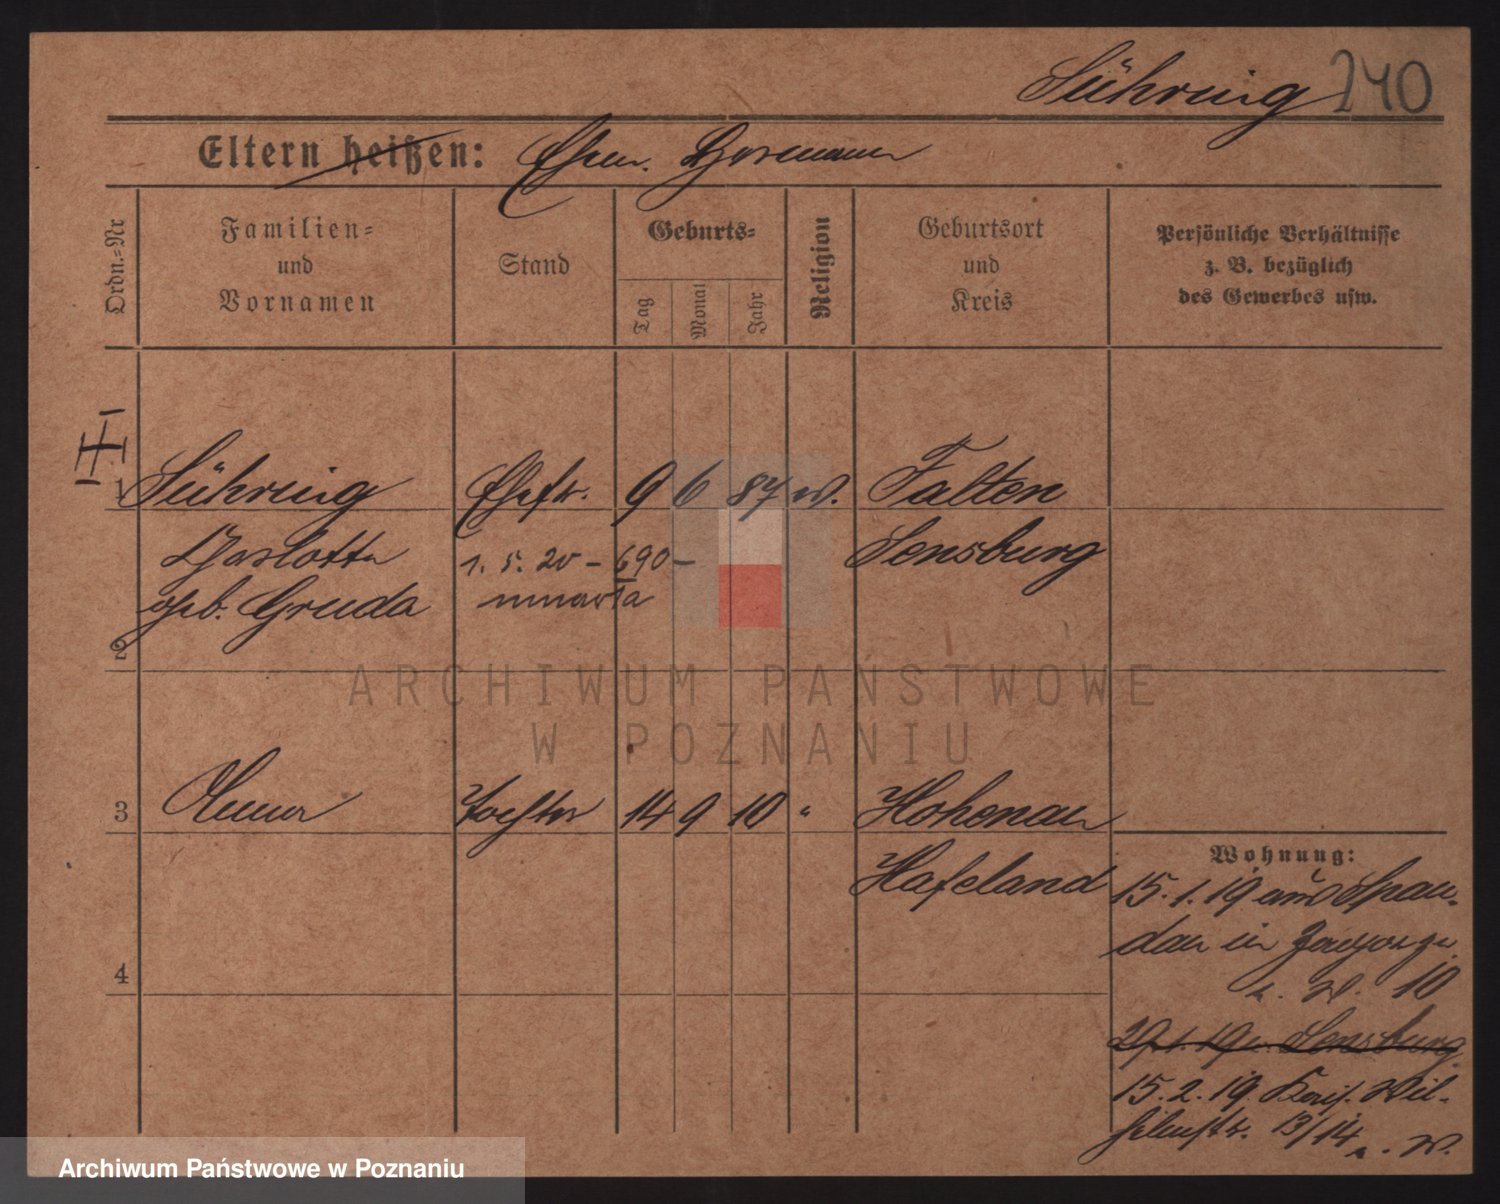 Sühring 240
Eltern heißen: Ehem. Hermann
Ordn.-Nr
Familien-
und
Vornamen
Stand
Geburts-
Tag
Monat
Jahr
Religion
Geburtsort
und
Kreis
Persönliche Verhältnisse
z. B. bezüglich
des Gewerbes usw.
1 Sühring Ehefr. 9 6 87 w. Falten
Charlotte 1. 5. 20 – 690 – Sensburg
geb. Gruda umarła
2
3 Tochter 14 9 10 " Hohenau
Hafeland
Wohnung:
15.1.19 aus Span-
dau in
10
4
29.1.19 n. Sensburg
15.2.19. Kais. Wil-
helmstr. 13/14
ARCHIWUM PAŃSTWOWE
W POZNANIU
Archiwum Państwowe w Poznaniu